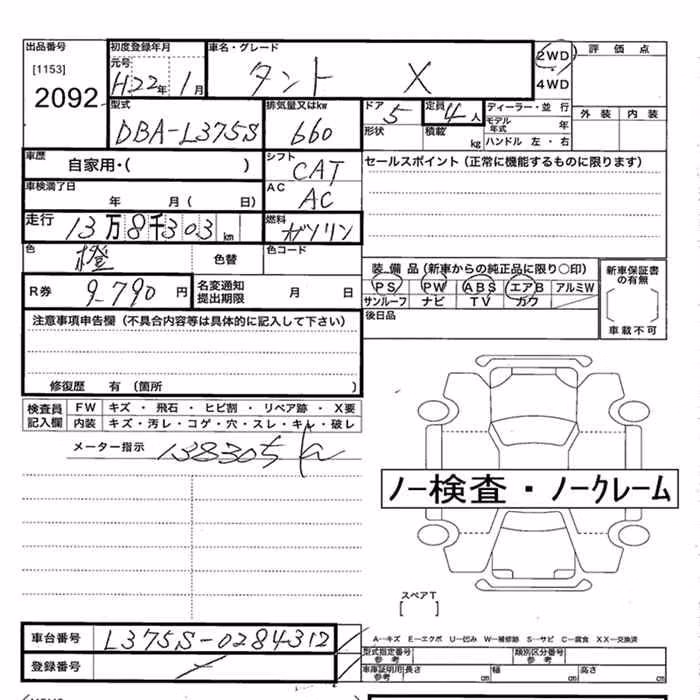 出品番号 初度登録年月 車名・グレード 2WD 評価点
[1153] 元号 H22年 1月 タント X 4WD
2092 型式 排気量又はkw ドア 5 定員 4人 ディーラー・並行 外装 内装
DBA-L375S 660 形状 積載 kg モデル年式 年
ハンドル 左・右
車歴 自家用・( ) シフト CAT セールスポイント(正常に機能するものに限ります)
車検満了日 年 月( 日) AC AC
走行 13万8千303km 燃料 ガソリン
色 橙 色替 色コード
装備品(新車からの純正品に限り○印) 新車保証書の有無
R券 9790円 名変通知提出期限 月 日 PS PW ABS エアB アルミW
サンルーフ ナビ TV カワ
注意事項申告欄(不具合内容等は具体的に記入して下さい) 後日品 車載不可
修復歴 有(箇所 )
検査員記入欄 FW キズ・飛石・ヒビ割・リペア跡・X要
内装 キズ・汚レ・コゲ・穴・スレ・キレ・破レ
メーター指示 138305
ノー検査・ノークレーム
スペアT
[ ]
車台番号 L375S-0284312 A―キズ E―エクボ U―凹み W―補修跡 S―サビ C―腐食 XX―交換済
型式指定番号 参考 類別区分番号 参考
登録番号 車庫証明用参考 長さ cm 幅 cm 高さ cm